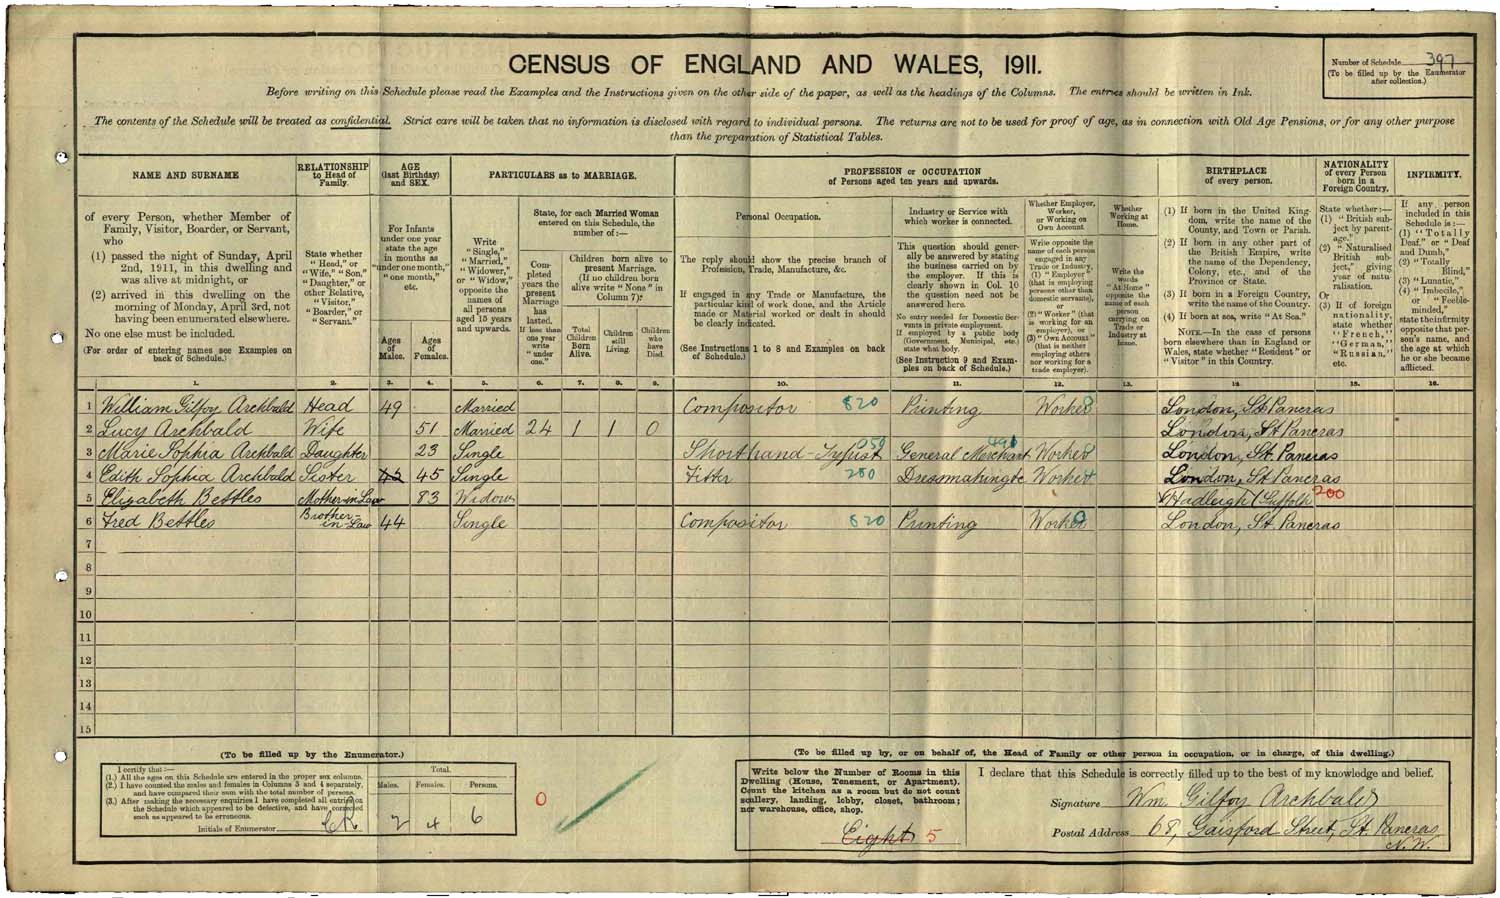 CENSUS OF ENGLAND AND WALES, 1911.
Number of Schedule 397
(To be filled up by the Enumerator
after collection.)
Before writing on this Schedule please read the Examples and the Instructions given on the other side of the paper, as well as the headings of the Columns. The entries should be written in Ink.
The contents of the Schedule will be treated as confidential. Strict care will be taken that no information is disclosed with regard to individual persons. The returns are not to be used for proof of age, as in connection with Old Age Pensions, or for any other purpose
than the preparation of Statistical Tables.
NAME AND SURNAME
of every Person, whether Member of
Family, Visitor, Boarder, or Servant,
who
(1) passed the night of Sunday, April
2nd, 1911, in this dwelling and
was alive at midnight, or
(2) arrived in this dwelling on the
morning of Monday, April 3rd, not
having been enumerated elsewhere.
No one else must be included.
(For order of entering names see Examples on
back of Schedule.)
RELATIONSHIP
to Head of
Family.
State whether
"Head," or
"Wife," "Son,"
"Daughter," or
other Relative,
"Visitor,"
"Boarder," or
"Servant."
AGE
(last Birthday)
and SEX.
For Infants
under one year
state the age
in months as
"under one month,"
"one month,"
etc.
Ages
of
Males.
Ages
of
Females.
PARTICULARS as to MARRIAGE.
Write
"Single,"
"Married,"
"Widower,"
or "Widow,"
opposite the
names of
all persons
aged 15 years
and upwards.
State, for each Married Woman
entered on this Schedule, the
number of:—
Com-
pleted
years the
present
Marriage
has
lasted.
If less than
one year
write
"under
one."
Children born alive to
present Marriage.
(If no children born
alive write "None" in
Column 7).
Total
Children
Born
Alive.
Children
still
Living.
Children
who
have
Died.
PROFESSION or OCCUPATION
of Persons aged ten years and upwards.
Personal Occupation.
The reply should show the precise branch of
Profession, Trade, Manufacture, &c.
If engaged in any Trade or Manufacture, the
particular kind of work done, and the Article
made or Material worked or dealt in should
be clearly indicated.
(See Instructions 1 to 8 and Examples on back
of Schedule.)
Industry or Service with
which worker is connected.
This question should gener-
ally be answered by stating
the business carried on by
the employer. If this is
clearly shown in Col. 10
the question need not be
answered here.
No entry needed for Domestic Ser-
vants in private employment.
If employed by a public body
(Government, Municipal, etc.)
state what body.
(See Instruction 9 and Exam-
ples on back of Schedule.)
Whether Employer,
Worker,
or Working on
Own Account
Write opposite the
name of each person
engaged in any
Trade or Industry,
(1) "Employer"
(that is employing
persons other than
domestic servants),
or
(2) "Worker" (that
is working for an
employer), or
(3) "Own Account"
(that is neither
employing others
nor working for a
trade employer).
Whether
Working at
Home.
Write the
words
"At Home"
opposite the
name of each
person
carrying on
Trade or
Industry at
home.
BIRTHPLACE
of every person.
(1) If born in the United King-
dom, write the name of the
County, and Town or Parish.
(2) If born in any other part of
the British Empire, write
the name of the Dependency,
Colony, etc., and of the
Province or State.
(3) If born in a Foreign Country,
write the name of the Country.
(4) If born at sea, write "At Sea."
NOTE.—In the case of persons
born elsewhere than in England or
Wales, state whether "Resident" or
"Visitor" in this Country.
NATIONALITY
of every Person
born in a
Foreign Country.
State whether:—
(1) "British sub-
ject by parent-
age,"
(2) "Naturalised
British sub-
ject," giving
year of natu-
ralisation.
Or
(3) If of foreign
nationality,
state whether
"French,"
"German,"
"Russian,"
etc.
INFIRMITY.
If any person
included in this
Schedule is:—
(1) "Totally
Deaf," or "Deaf
and Dumb,"
(2) "Totally
Blind,"
(3) "Lunatic,"
(4) "Imbecile,"
or "Feeble-
minded,"
state the infirmity
opposite that per-
son's name, and
the age at which
he or she became
afflicted.
1. 2. 3. 4. 5. 6. 7. 8. 9. 10. 11. 12. 13. 14. 15. 16.
1 William Gilfoy Archbald Head 49 Married Compositor 820 Printing Worker London, St Pancras
2 Lucy Archbald Wife 51 Married 24 1 1 0 London, St Pancras
3 Marie Sophia Archbald Daughter 23 Single Shorthand-Typist 050 General Merchant 490 Worker London, St. Pancras
4 Edith Sophia Archbald Sister 45 Single Fitter 280 Dressmaking Worker London, St Pancras
5 Elizabeth Bettles Mother-in-Law 83 Widow Hadleigh (Suffolk 200
6 Fred Bettles Brother-in-Law 44 Single Compositor 820 Printing Worker London, St. Pancras
7
8
9
10
11
12
13
14
15
(To be filled up by the Enumerator.)
I certify that:—
(1.) All the ages on this Schedule are entered in the proper sex columns.
(2.) I have counted the males and females in Columns 3 and 4 separately,
and have compared their sum with the total number of persons.
(3.) After making the necessary enquiries I have completed all entries on
the Schedule which appeared to be defective, and have corrected
such as appeared to be erroneous.
Initials of Enumerator
Total.
Males. Females. Persons.
2 4 6
0
(To be filled up by, or on behalf of, the Head of Family or other person in occupation, or in charge, of this dwelling.)
Write below the Number of Rooms in this
Dwelling (House, Tenement, or Apartment).
Count the kitchen as a room but do not count
scullery, landing, lobby, closet, bathroom;
nor warehouse, office, shop.
Eight 5
I declare that this Schedule is correctly filled up to the best of my knowledge and belief.
Signature Wm Gilfoy Archbald
Postal Address 68, Gaisford Street, St. Pancras
N.W.